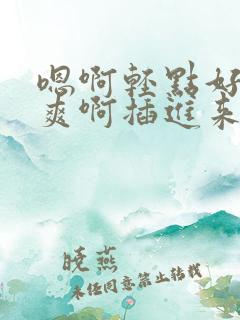 嗯啊轻點好
爽啊插進来
晓燕
未经同意禁止转载